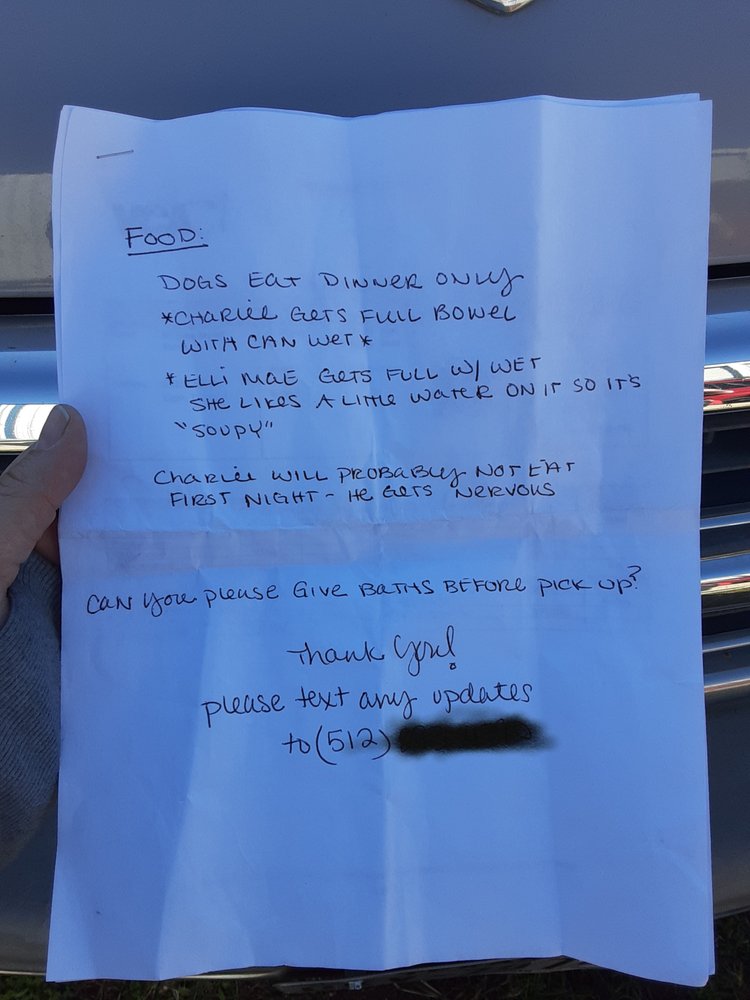 FOOD:
DOGS EAT DINNER ONLY
*CHARLIE GETS FULL BOWEL
WITH CAN WET*
*ELLI MAE GETS FULL W/ WET
SHE LIKES A LITTLE WATER ON IT SO IT'S
"SOUPY"
CHARLIE WILL PROBABLY NOT EAT
FIRST NIGHT - HE GETS NERVOUS
CAN YOU PLEASE GIVE BATHS BEFORE PICK UP?
Thank You!
please text any updates
to (512)